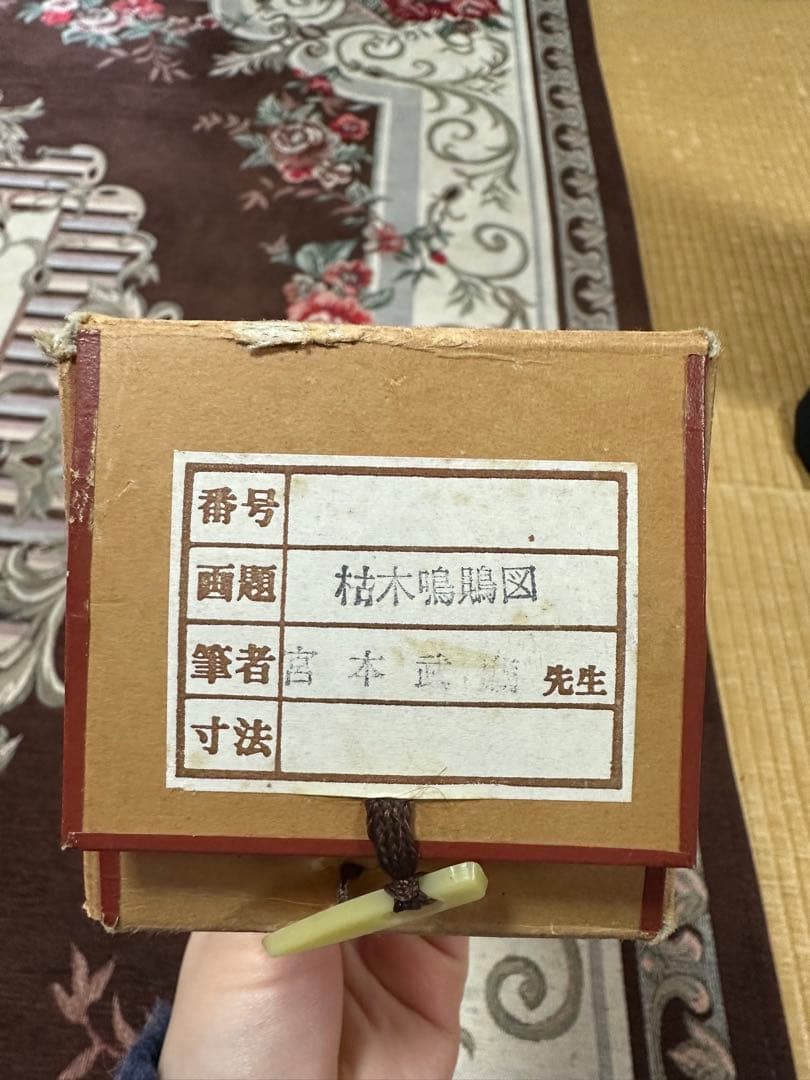 番号
画題 枯木鳴鵙図
筆者 宮本武 先生
寸法